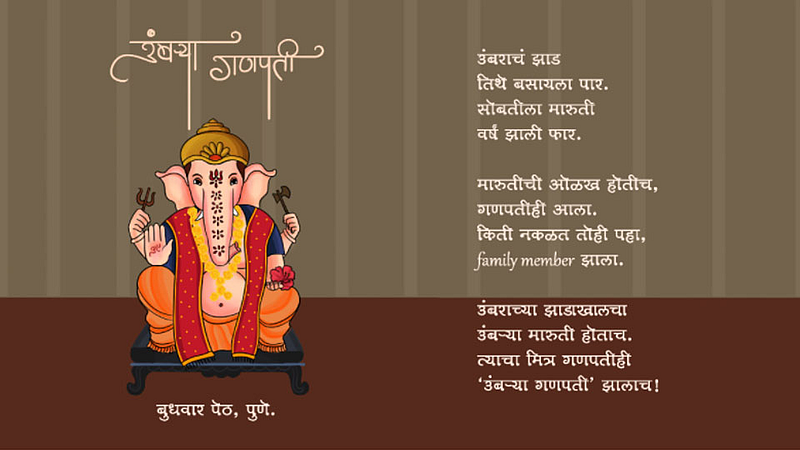 उंबऱ्या गणपती
उंबराचं झाड
तिथे बसायला पार.
सोबतीला मारुती
वर्षं झाली फार.
मारुतीची ओळख होतीच,
गणपतीही आला.
किती नकळत तोही पहा,
family member झाला.
उंबराच्या झाडाखालचा
उंबऱ्या मारुती होताच.
त्याचा मित्र गणपतीही
‘उंबऱ्या गणपती’ झालाच!
बुधवार पेठ, पुणे.